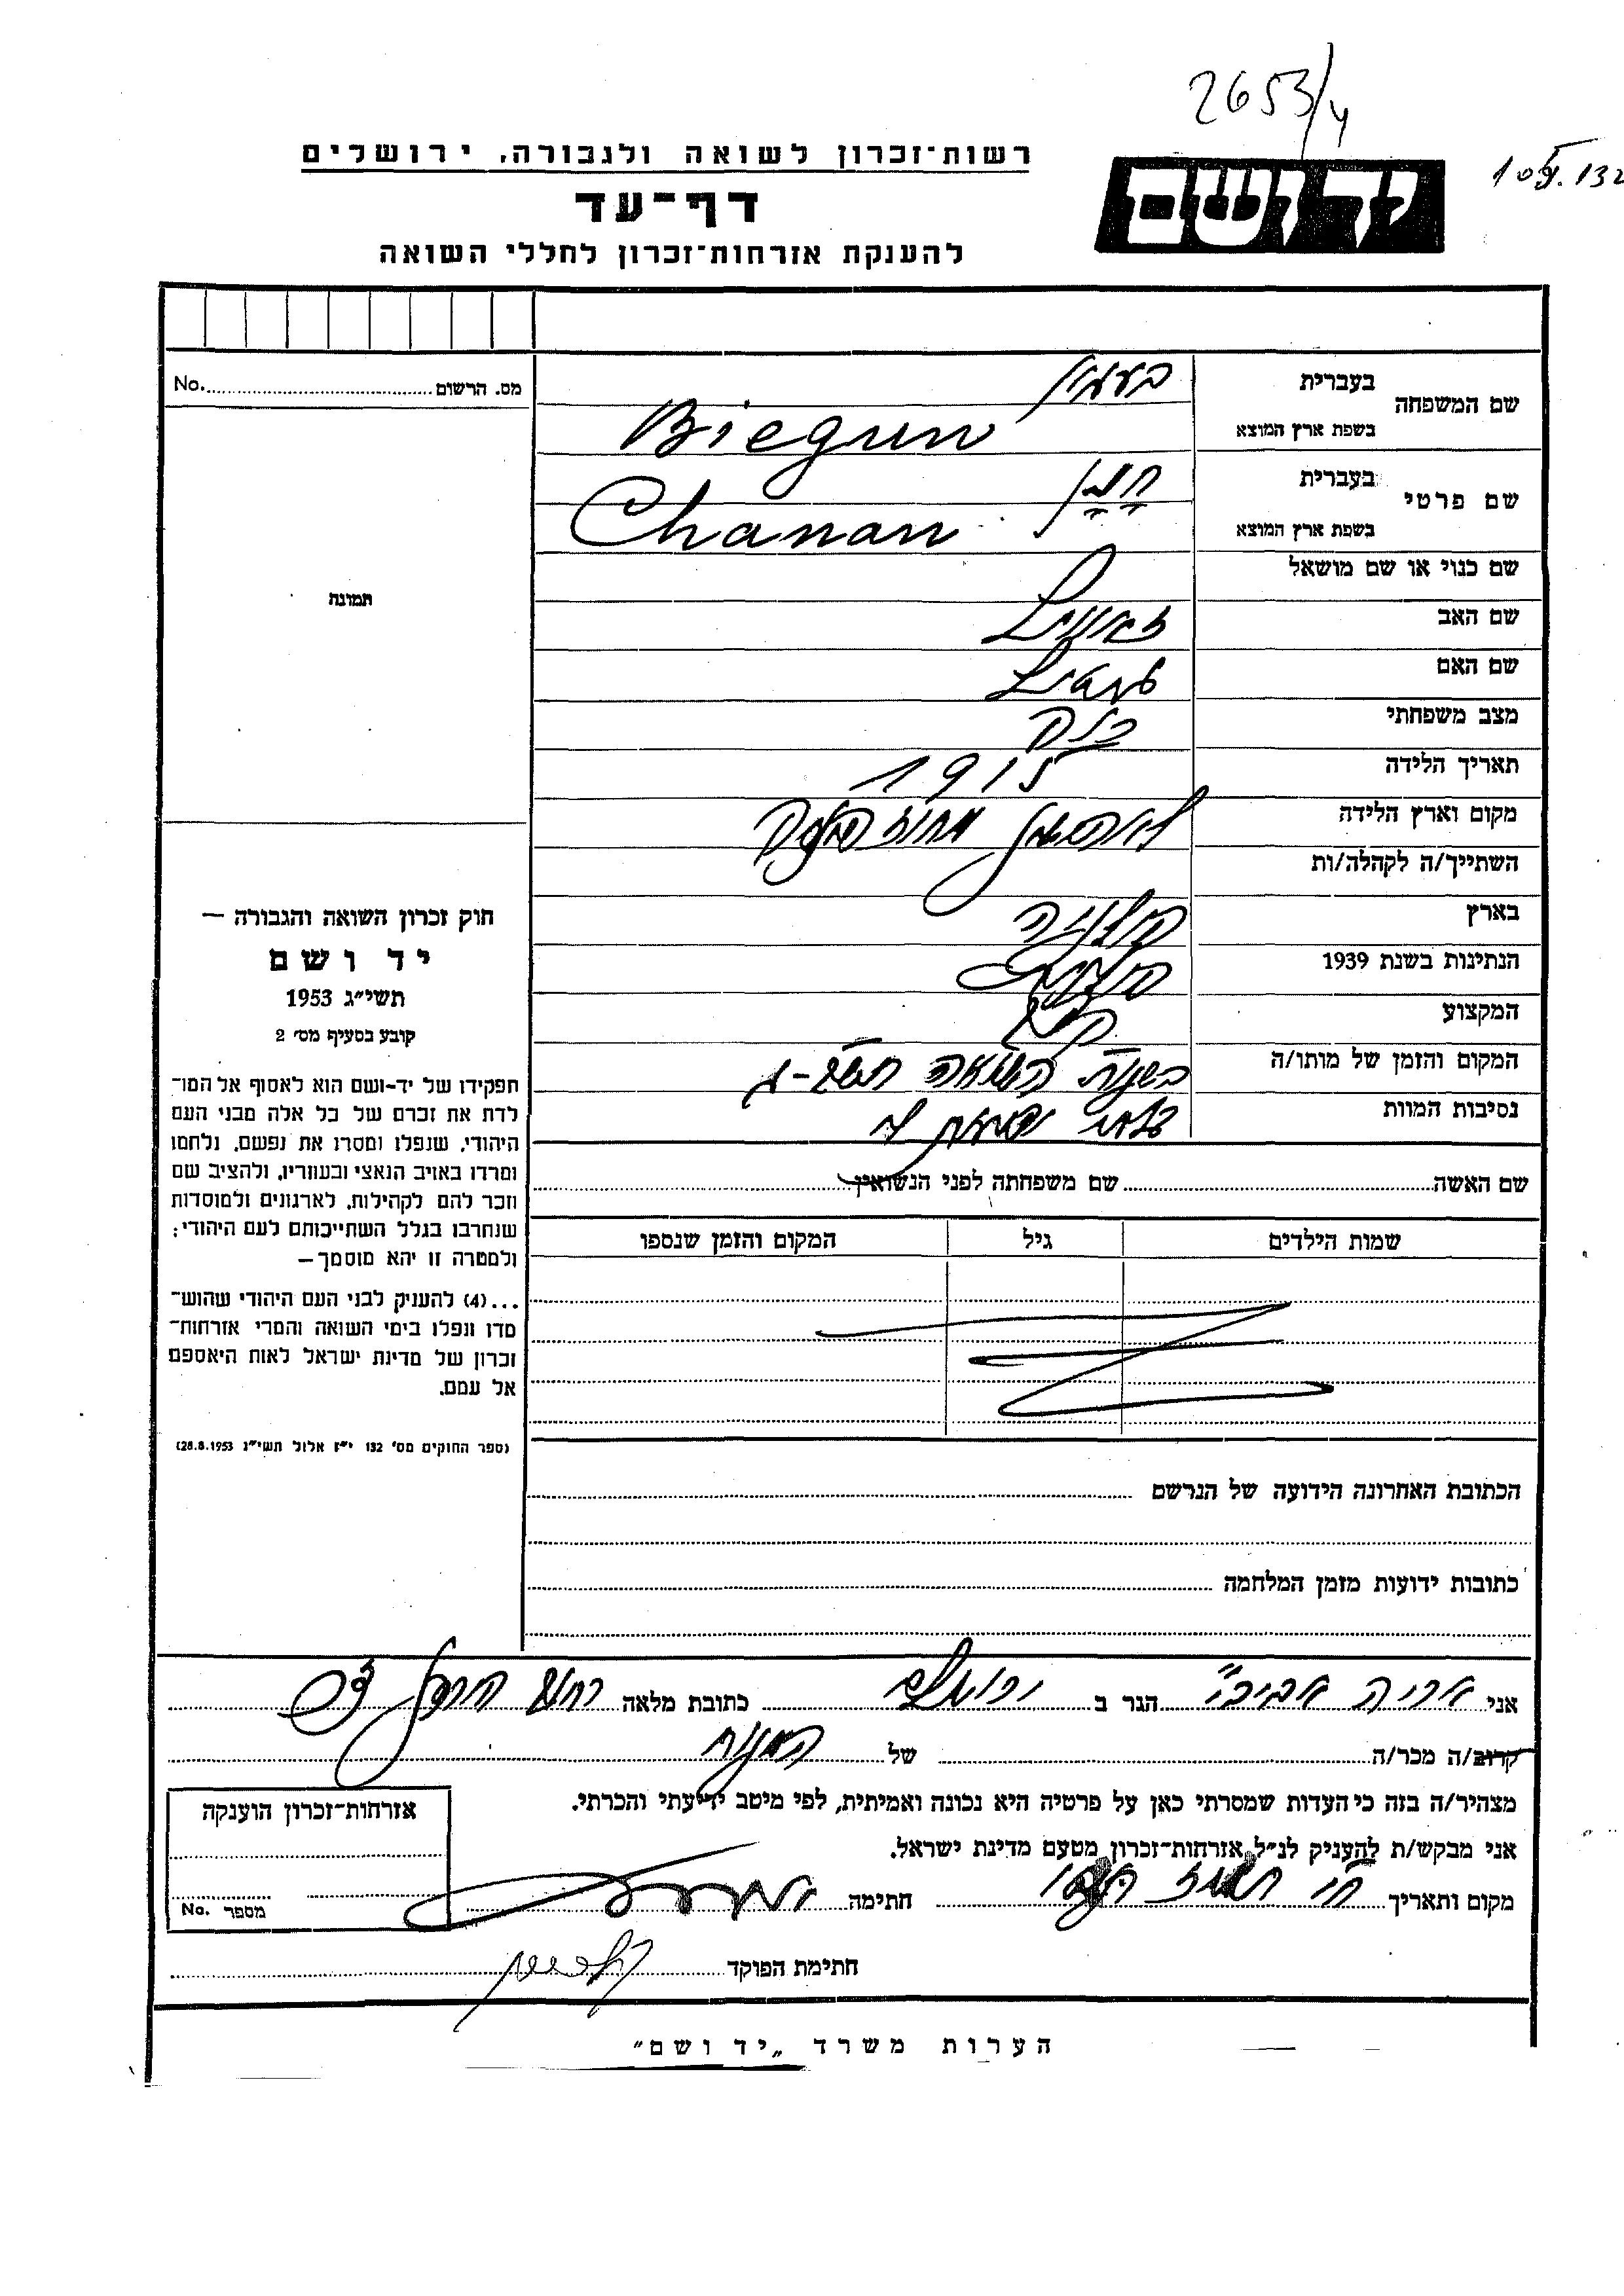 2653/4
רשות־זכרון לשואה ולגבורה, ירושלים
דף־עד
להענקת אזרחות־זכרון לחללי השואה
יד ושם
מס. הרשום No.
שם המשפחה
בעברית
בשפת ארץ המוצא Biegun
שם פרטי
בעברית חנן
בשפת ארץ המוצא Chanan
שם כנוי או שם מושאל
שם האב
שם האם
מצב משפחתי רווק
תאריך הלידה
מקום וארץ הלידה
השתייך/ה לקהלה/ות
בארץ פולניה
הנתינות בשנת 1939 פולנית
המקצוע
המקום והזמן של מותו/ה בשנות השואה
נסיבות המוות
שם האשה שם משפחתה לפני הנשואין
שמות הילדים גיל המקום והזמן שנספו
תמונה
חוק זכרון השואה והגבורה —
יד ושם
תשי״ג 1953
קובע בסעיף מס׳ 2
תפקידו של יד־ושם הוא לאסוף אל המו־
לדת את זכרם של כל אלה מבני העם
היהודי, שנפלו ומסרו את נפשם, נלחמו
ומרדו באויב הנאצי ובעוזריו, ולהציב שם
וזכר להם לקהילות, לארגונים ולמוסדות
שנחרבו בגלל השתייכותם לעם היהודי;
ולמטרה זו יהא מוסמך—
...(4) להעניק לבני העם היהודי שהוש־
מדו ונפלו בימי השואה והמרי אזרחות־
זכרון של מדינת ישראל לאות היאספם
אל עמם.
(ספר החוקים מס׳ 132 י״ז אלול תשי״ג 28.8.1953)
הכתובת האחרונה הידועה של הנרשם
כתובות ידועות מזמן המלחמה
אני אריה אביבי הגר ב ירושלים כתובת מלאה
קרוב/ה מכר/ה של המנוח
מצהיר/ה בזה כי העדות שמסרתי כאן על פרטיה היא נכונה ואמיתית, לפי מיטב ידיעתי והכרתי.
אני מבקש/ת להעניק לנ״ל אזרחות־זכרון מטעם מדינת ישראל.
מקום ותאריך חתימה
חתימת הפוקד
אזרחות־זכרון הוענקה
מספר No.
הערות משרד „יד ושם״